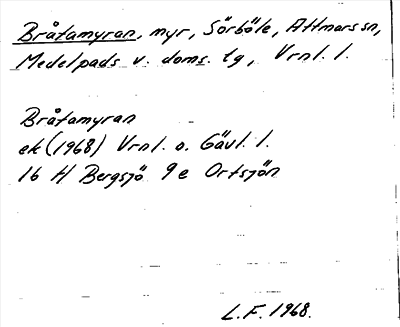 Bråtamyran, myr, Sörböle, Attmars sn,
Medelpads v. doms. tg, Vrnl. l.
Bråtamyran
ek (1968) Vrnl. o. Gävl. l.
16 H Bergsjö 9 e Ortsjön
L.F. 1968.